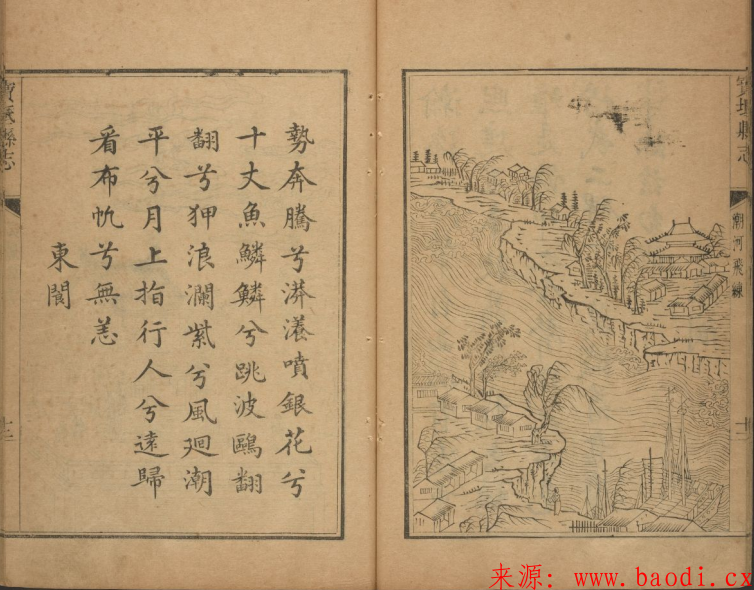 寶坻縣志
潮河飛練
勢奔騰兮漭瀁噴銀花兮
十丈魚鱗鱗兮跳波鷗翻
翻兮狎浪瀾紫兮風廻潮
平兮月上指行人兮遠歸
看布帆兮無恙
東
寶坻縣志
来源: www.baodi.cx